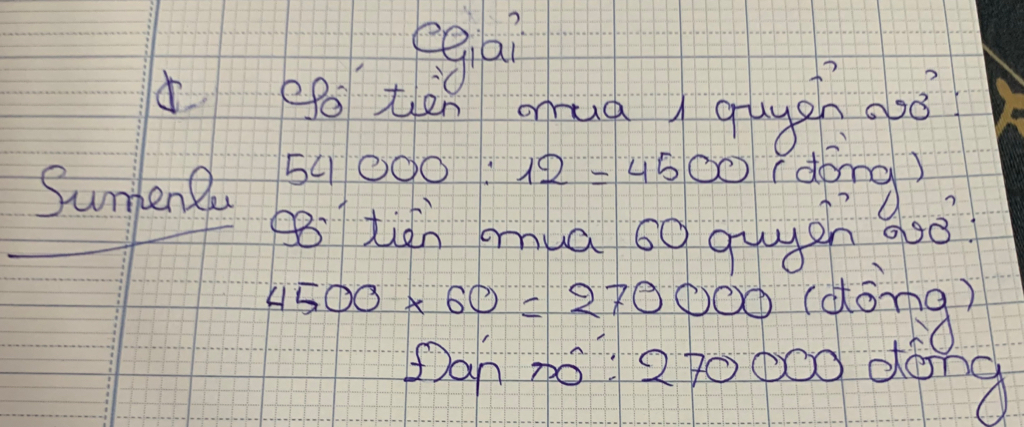 Giải
Số tiền mua 1 quyển vở:
54 000 : 12 = 4500 (đồng)
Sumenlu
Số tiền mua 60 quyển vở:
4500 x 60 = 270 000 (đồng)
Đáp số: 270 000 đồng